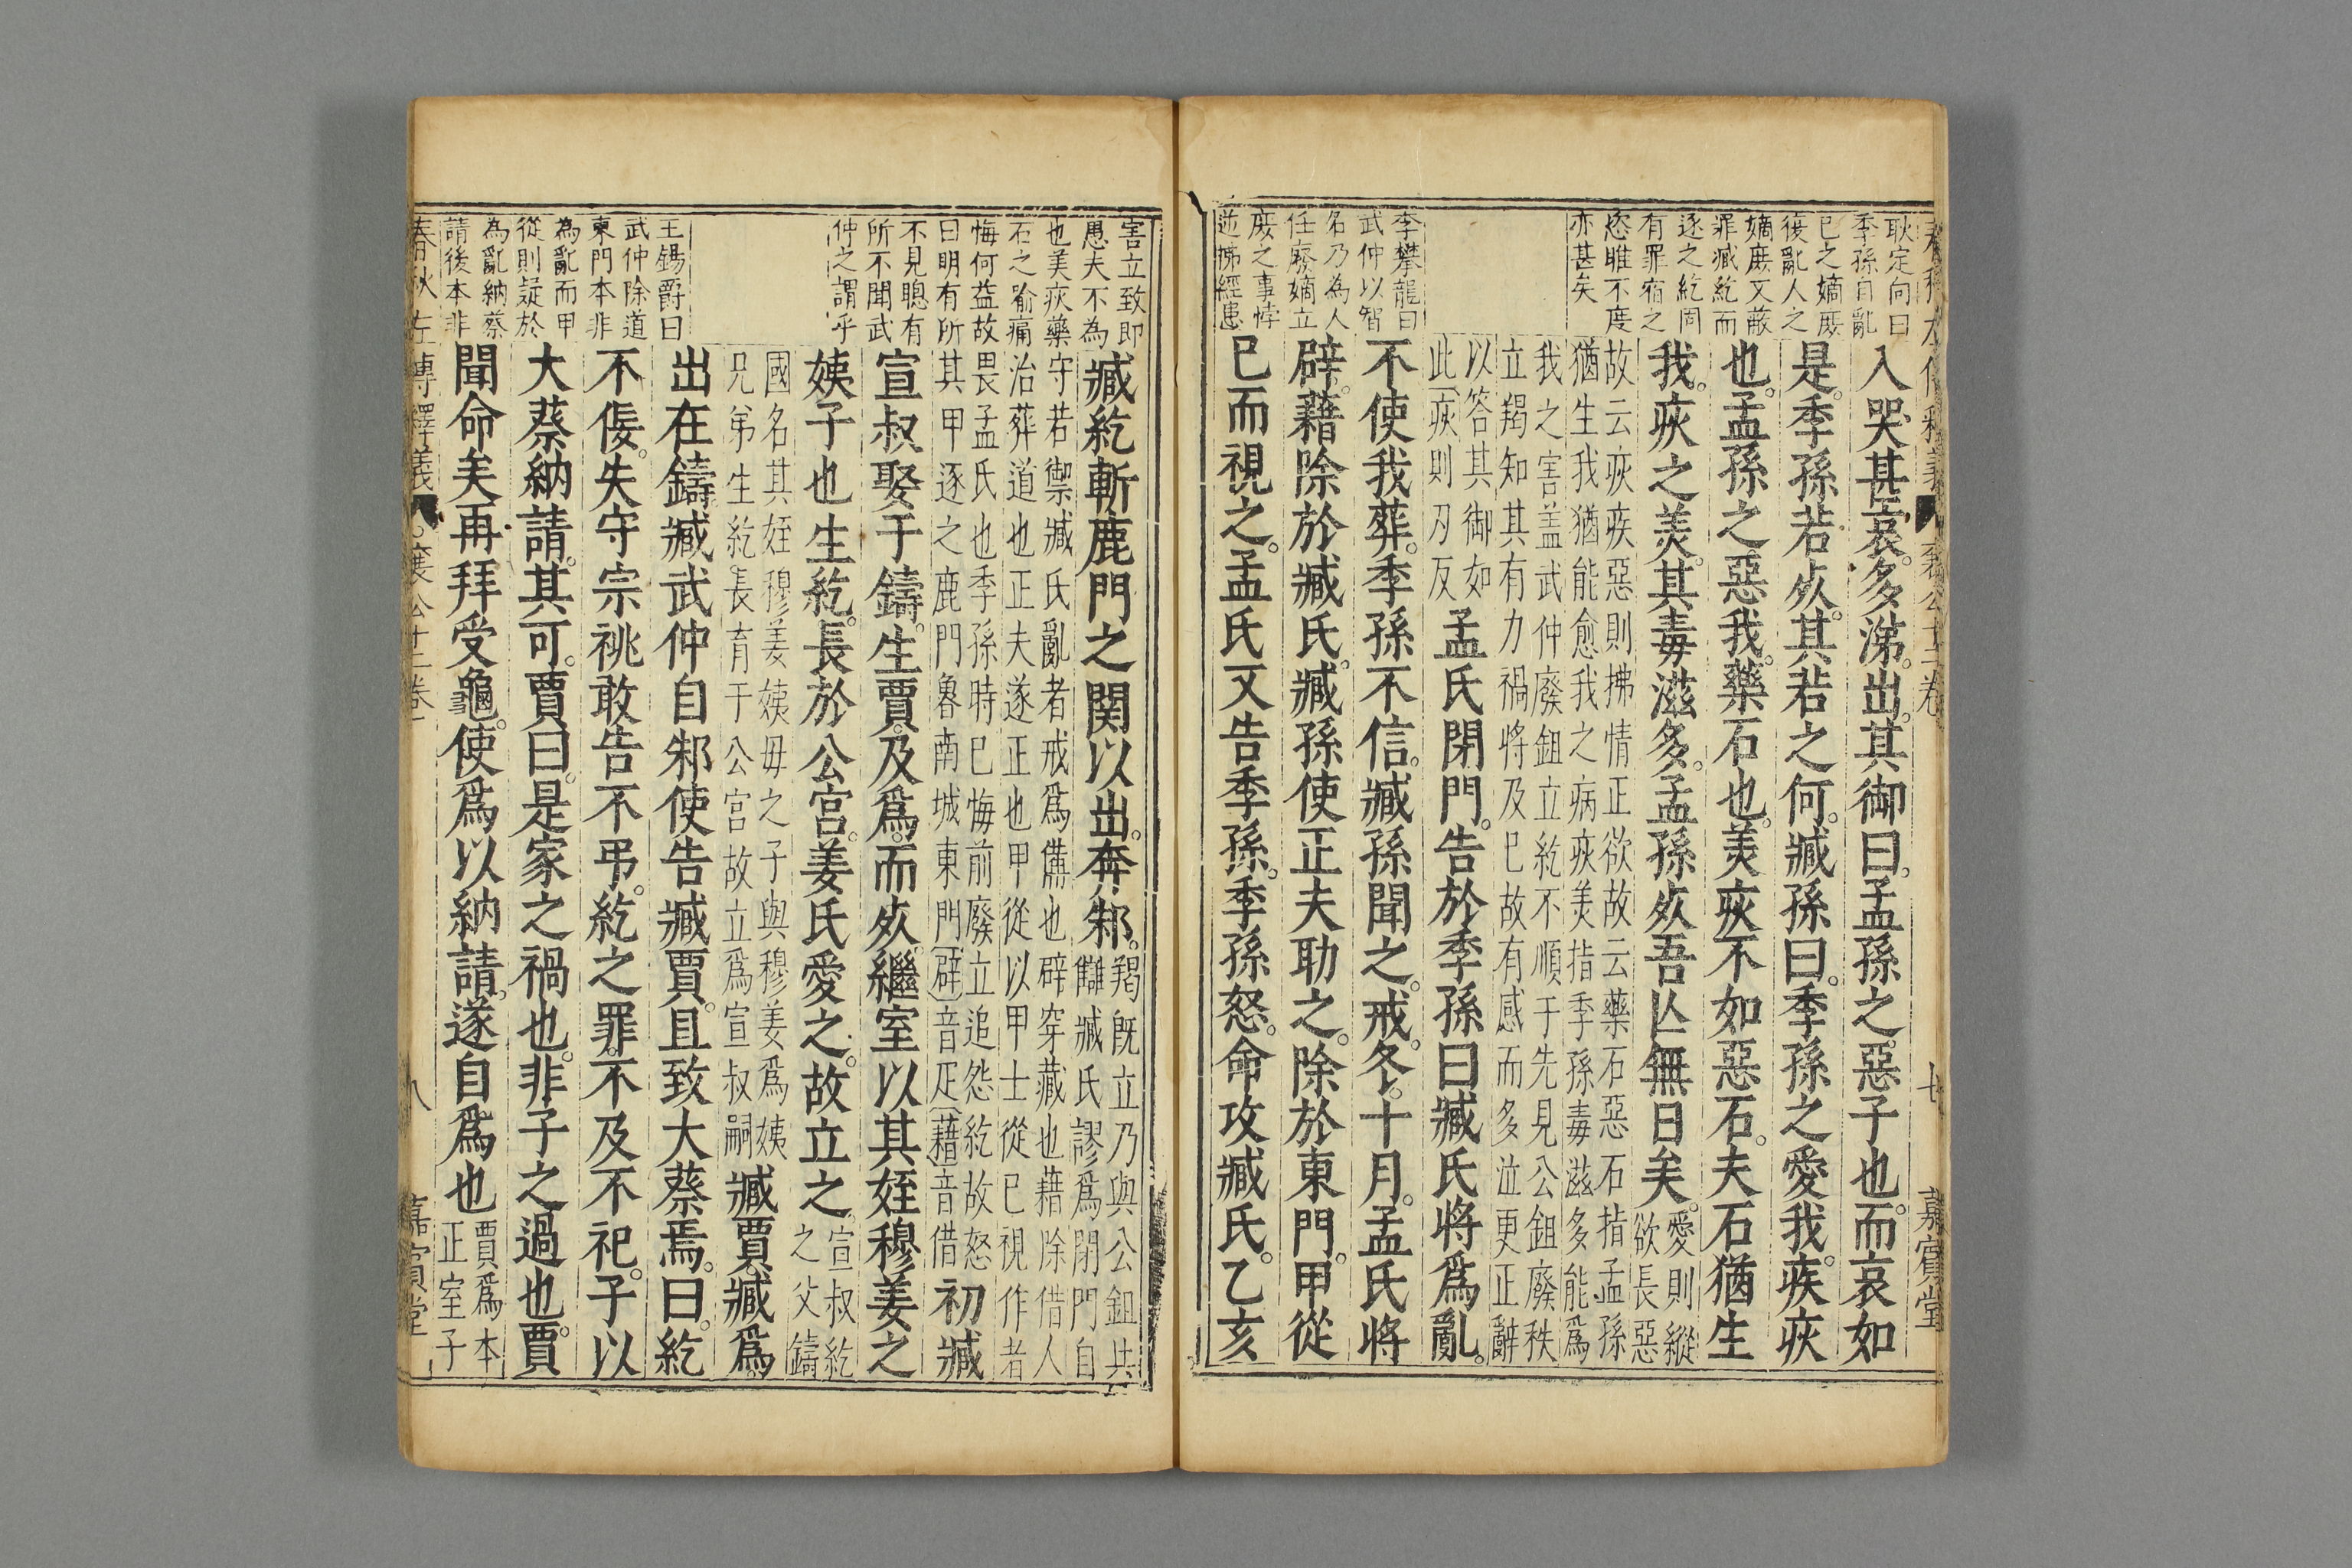 耿定向曰
季孫自亂
已之嫡庶
復亂人之
嫡庶又蔽
罪臧紇而
逐之紇罔
有罪宿之
恣睢不度
亦甚矣
李攀龍曰
武仲以智
名乃為人
任廢嫡立
庶之事悖
逆拂經患
入哭甚哀。多涕。出。其御曰。孟孫之惡子也。而哀如
是。季孫若㱙。其若之何。臧孫曰。季孫之愛我。疾疢
也。孟孫之惡我。藥石也。美疢不如惡石。夫石猶生
我。疢之美。其毒滋多。孟孫㱙吾亾無日矣。愛則縱
欲長惡
故云疢疾惡則拂情正欲故云藥石惡石指孟孫
猶生我猶能愈我之病疢美指季孫毒滋多能爲
我之害盖武仲廢鉏立紇不順于先見公鉏廢秩
立羯知其有力禍將及巳故有感而多泣更正辭
以答其御如
此疢則刃反
孟氏閉門。告於季孫曰臧氏將爲亂。
不使我葬。季孫不信。臧孫聞之。戒。冬。十月。孟氏將
辟。藉除於臧氏。臧孫使正夫助之。除於東門。甲從
已而視之。孟氏又告季孫。季孫怒。命攻臧氏。乙亥
七
嘉賓堂
害立致即
愚夫不為
也美疢藥
石之喻痛
悔何益故
曰明有所
不見聰有
所不聞武
仲之謂乎
王錫爵曰
武仲除道
東門本非
為亂而甲
從則疑於
為亂納蔡
請後本非
臧紇斬鹿門之関以出。奔邾。羯旣立乃與公鉏共
讎臧氏謬爲閉門自
守若禦臧氏亂者戒爲備也辟穿藏也藉除借人
治葬道也正夫遂正也甲從以甲士從已視作者
畏孟氏也季孫時巳悔前廢立追怨紇故怒
其甲逐之鹿門魯南城東門辟音疋藉音借
初臧
宣叔娶于鑄。生賈。及爲。而㱙繼室以其姪穆姜之
姨子也生紇。長於公宮。姜氏愛之。故立之。宣叔紇
之父鑄
國名其姪穆姜姨毋之子與穆姜爲姨
兄弟生紇。長育于公宮故立爲宣叔嗣
臧賈。臧爲。
出在鑄臧武仲自邾使告臧賈。且致大蔡焉。曰。紇
不佞。失守宗祧敢告不弔。紇之罪。不及不祀。子以
大蔡納請。其可。賈曰。是家之禍也。非子之過也。賈
聞命矣再拜受龜。使爲以納請。遂自爲也賈爲本
正室子
春秋左傳釋義
襄公十二卷
八
嘉賓堂